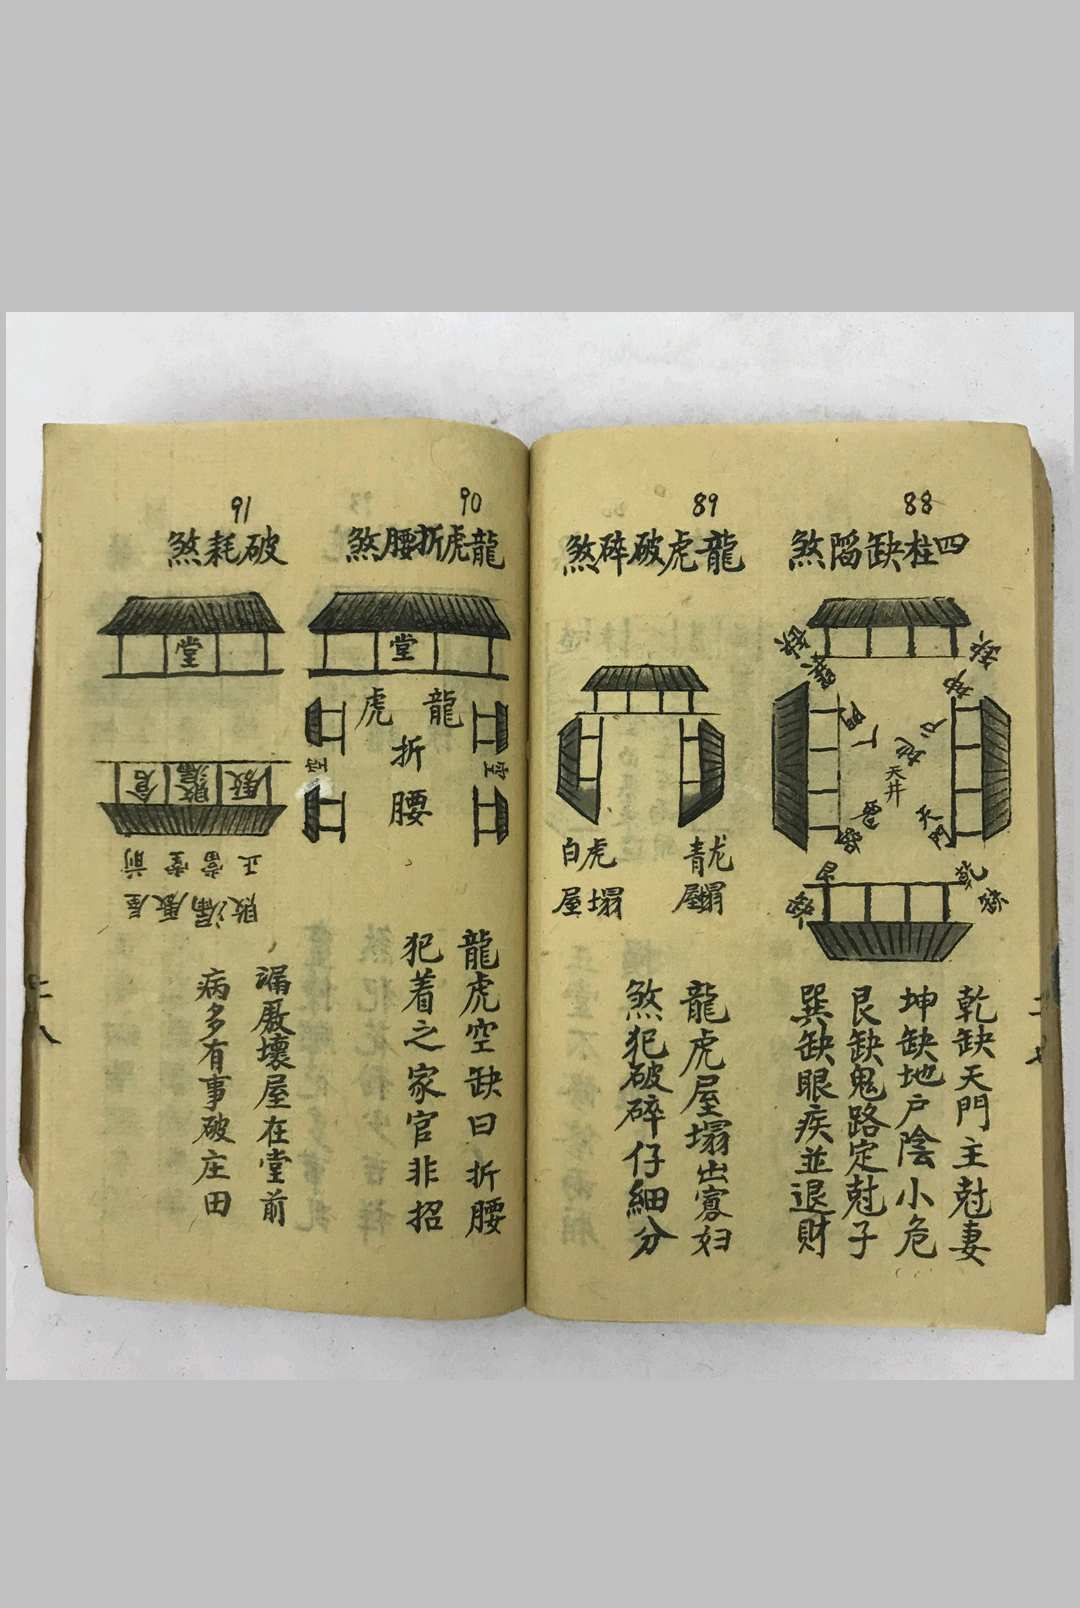 88
四柱缺陷煞
天井
天門
乾缺天門主尅妻
坤缺地户陰小危
艮缺鬼路定尅子
巽缺眼疾並退財
89
龍虎破碎煞
青龙
屋塌
白虎
屋塌
龍虎屋塌出寡妇
煞犯破碎仔細分
90
龍虎折腰煞
堂
龍
虎
折
腰
空
空
龍虎空缺曰折腰
犯着之家官非招
91
破耗煞
堂
正當堂前
敗漏廒屋
漏廒壞屋在堂前
病多有事破庄田
二八